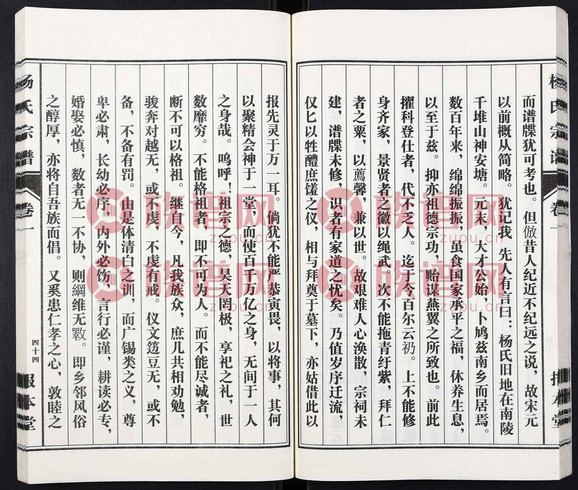 而谱牒犹可考也。但倣昔人纪近不纪远之说，故宋元
以前概从简略。犹记我　先人有言曰：杨氏旧地在南陵
千堆山神安塘。元末，大才公始　卜鸠兹南乡而居焉。
数百年来，绵绵振振，虽食国家承平之福，休养生息，
以至于兹。抑亦祖德宗功，贻谋燕翼之所致也。前此
擢科登仕者，代不乏人。迄于今百尔云礽，上不能修
身齐家，景贤者之徽以绳武，次不能拖青纡紫，拜仁
者之粟，以荐馨，兼以世。故艰难人心涣散，宗祠未
建，谱牒未修，识者有家道之忧矣。乃值岁序迁流，
仅匕以牲醴庶馐之仪，相与拜奠于墓下，亦姑借此以
报先灵于万一耳。倘犹不能严恭寅畏，以将事，其何
以聚精会神于一堂，而使百千万亿之身，无间于一人
之身哉。呜呼！祖宗之德，昊天罔极，享祀之礼，世
数靡穷。不能格祖者，即不可为人。而不能尽诚者，
断不可以格祖。继自今，凡我族众，庶几共相劝勉，
骏奔对越无，或不虔，不虔有戒。仪文笾豆无，或不
备，不备有罚。由是体清白之训，而广锡类之义，尊
卑必肃，长幼必序，内外必饬，言行必谨，耕读必专，
婚娶必慎，数者无一不协，则纲维无斁。即乡邻风俗
之醇厚，亦将自吾族而倡。又奚患仁孝之心，敦睦之
杨氏宗谱
卷一
四十四
报本堂
族谱网
zupu.cn